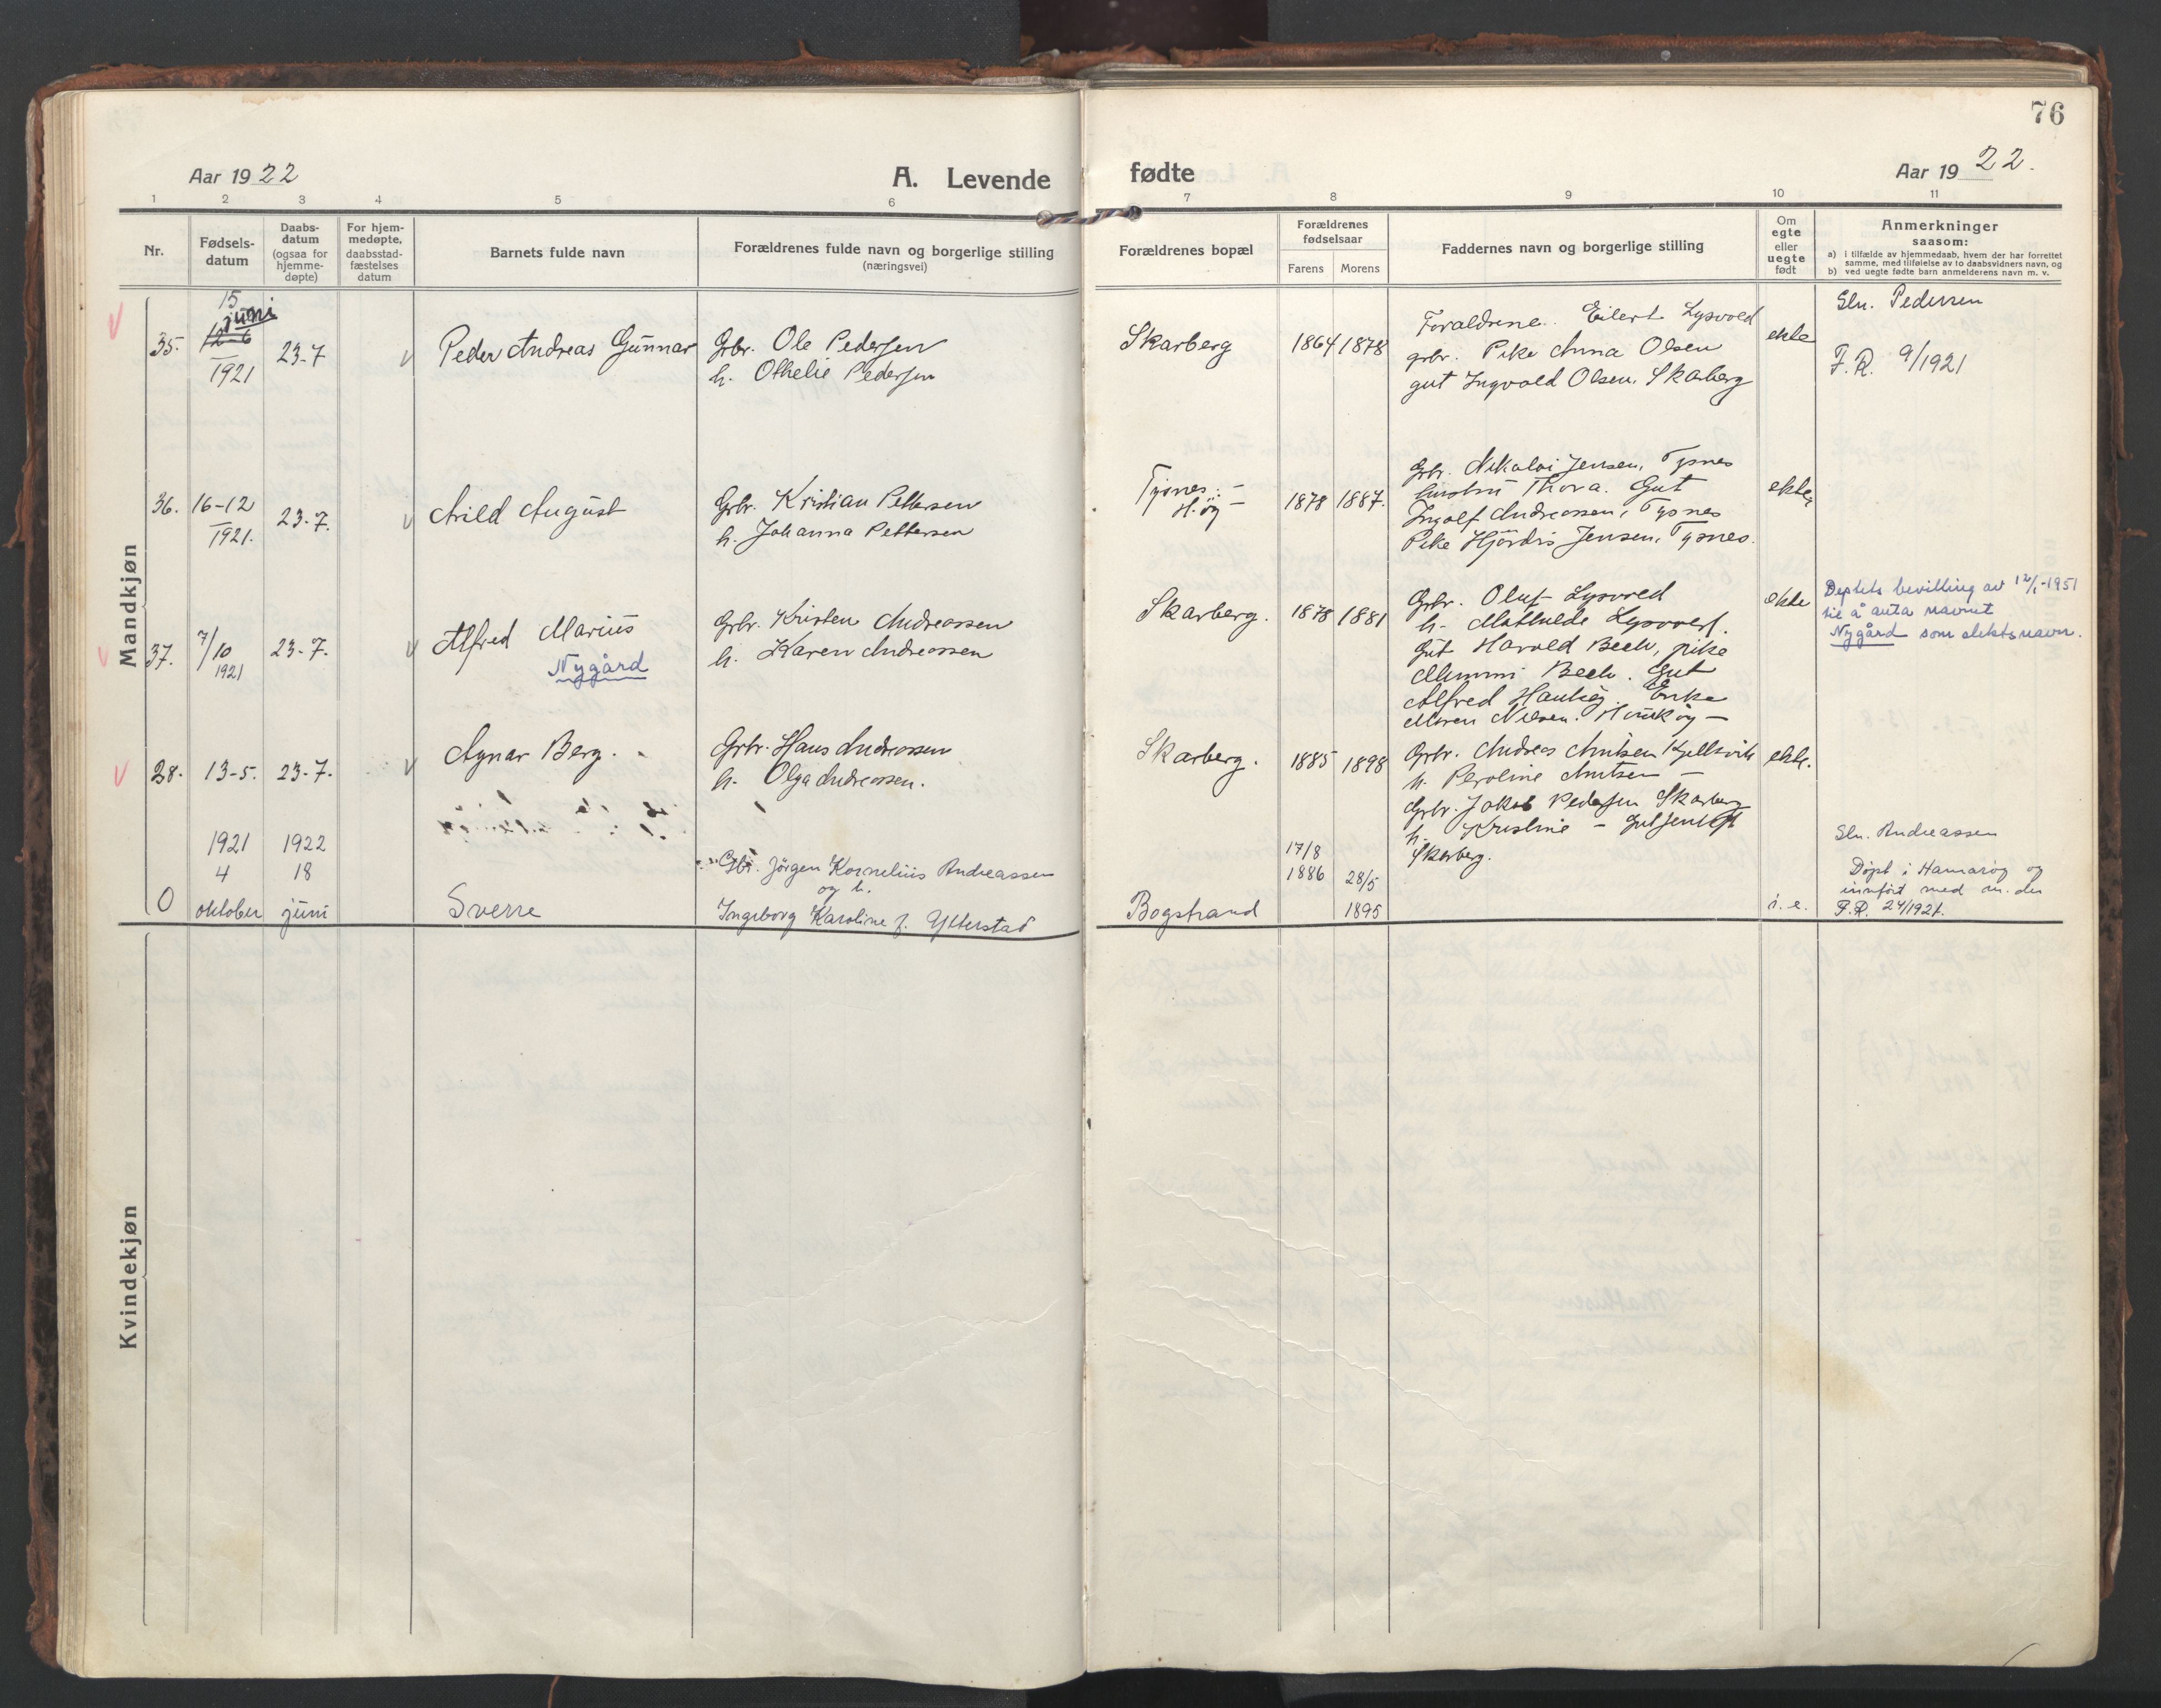 76
Aar 1922
A. Levende fødte
Aar 1922.
1 2 3 4 5 6 7 8 9 10 11
Nr.
Fødsels-
datum
Daabs-
datum
(ogsaa for
hjemme-
døpte)
For hjem-
medøpte,
daabsstad-
fæstelses
datum
Barnets fulde navn
Forældrenes fulde navn og borgerlige stilling
(næringsvei)
Forældrenes bopæl
Forældrenes
fødselsaar
Farens Morens
Faddernes navn og borgerlige stilling
Om
egte
eller
uegte
født
Anmerkninger
saasom:
a) i tilfælde av hjemmedaab, hvem der har forrettet
samme, med tilføielse av to daabsvidners navn, og
b) ved uegte fødte barn anmelderens navn m. v.
Mandkjøn
35.
15
juni
12-6
1921
23-7
v
Peder Andreas Gunnar
Grbr. Ole Pedersen
h. Othelie Pedersen
Skarberg
1864 1878
Forældrene. Eilert Lysvold
grbr. Pike Anna Olsen
gut Ingvald Olsen. Skarberg
ekte
Sln. Pedersen
F.R. 9/1921
36.
16-12
1921.
23-7.
v
Arild August
Grbr. Kristian Pettersen
h. Johanna Pettersen
Tysnes. -
H.øy -
1878 1887.
Grbr. Nikolai Jensen, Tysnes
hustru Thora. Gut
Ingolf Andreassen, Tysnes
Pike Hjördis Jensen, Tysnes.
ekte
37.
7/10
1921
23-7.
v
Alfred Marius
Nygård
Grbr. Kristen Andreassen
h. Karen Andreassen
Skarberg.
1878 1881
Grbr. Oluf Lysvold
h. Mathilde Lysvold.
Gut Harald Bech, pike
Mimmi Bech. Gut
Alfred Haukøy. Enke
Maren Nilsen. Haukøy -
ekte
Deptets bevilling av 12/1-1951
til å anta navnet
Nygård som slektsnavn.
38.
13-5.
23-7.
v
Agnar Berg.
Grbr. Hans Andreassen
h. Olga Andreassen.
Skarberg.
1885 1898
Grbr. Andreas Antsen Kjellvik
h. Peroline Antsen -
Grbr. Jakob Pedersen Skarberg
h. Kristine - Gut
Skarberg.
ekte.
0
1921
4
oktober
1922
18
juni
Sverre
Gbr. Jörgen Kornelius Andreassen
og h.
Ingeborg Karoline f. Ytterstad
Bogstrand
17/8
1886
28/5
1895
i. e.
Sln. Andreassen
Døpt i Hamarøy og
innført med nr. der
F.R. 24/1921.
Kvindekjøn